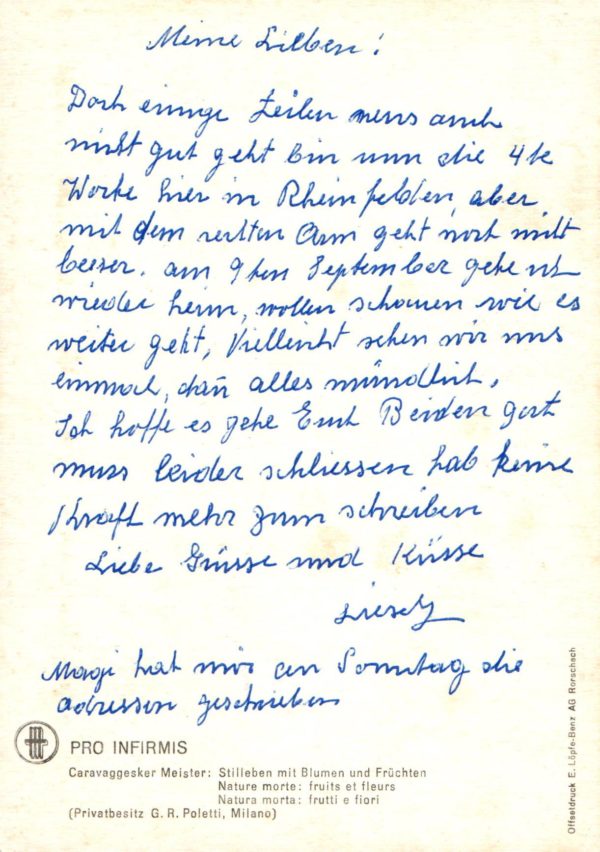 Meine Lieben!
Doch einige Zeilen wens auch
nicht gut geht bin nun die 4te
Woche hier in Rheinfelden, aber
mit dem rechten Arm geht noch nicht
besser. am 9ten September gehe ich
wieder heim, wollen schauen wie es
weiter geht, Vielleicht sehen wir uns
einmal, dañ alles mündlich.
Ich hoffe es gehe Euch Beiden gut
muss leider schliessen hab keine
Kraft mehr zum schreiben
Liebe Grüsse und Küsse
Magi hat mir an Sonntag die
adressen geschrieben
PRO INFIRMIS
Caravaggesker Meister: Stilleben mit Blumen und Früchten
Nature morte: fruits et fleurs
Natura morta: frutti e fiori
(Privatbesitz G. R. Poletti, Milano)
Offsetdruck E. Löpfe-Benz AG Rorschach